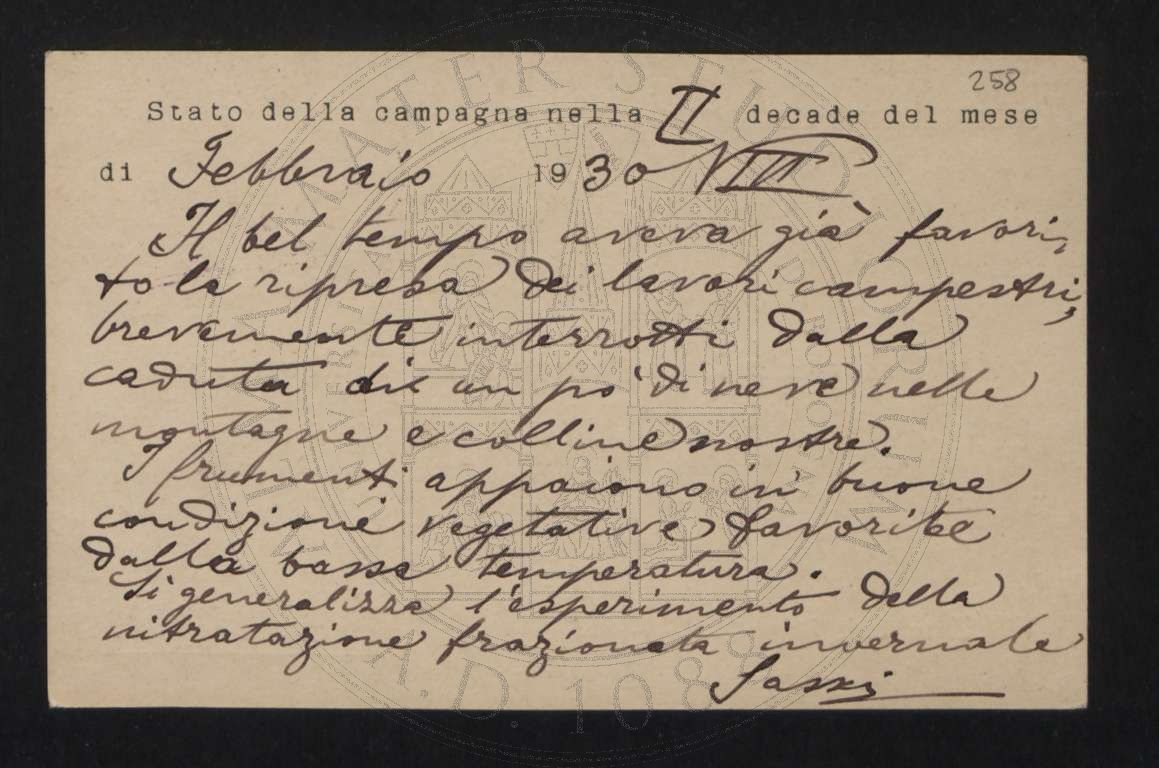 258
Stato della campagna nella II decade del mese
di Febbraio 1930 VIII
Il bel tempo aveva già favori-
to la ripresa dei lavori campestri,
brevemente interrotti dalla
caduta di un po' di neve nelle
montagne e colline nostre.
I frumenti appaiono in buone
condizioni vegetative favorite
dalla bassa temperatura.
Si generalizza l'esperimento della
nitratazione frazionata invernale
Sassi
ALMA MATER STUDIORUM
A.D. 1088